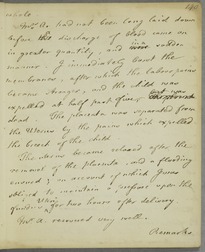 whole.
Mrs. A. had not been long laid down
before the discharge of blood came on
in greater quantity, and in a sudden
manner I immediately burst the
membranes, after which the labor pains
became stronger, and the child was
expelled at half past five, but was
dead. The placenta was separated from
the Uterus by the pains which expelled
the breech of the child.
The Uterus became relaxed after the
removal of the placenta, and a flooding
ensued; on account of which I was
obliged to maintain a pressure upon the
fundus Uteri for two hours after delivery.
Mrs. A. recovered very well.
Remarks